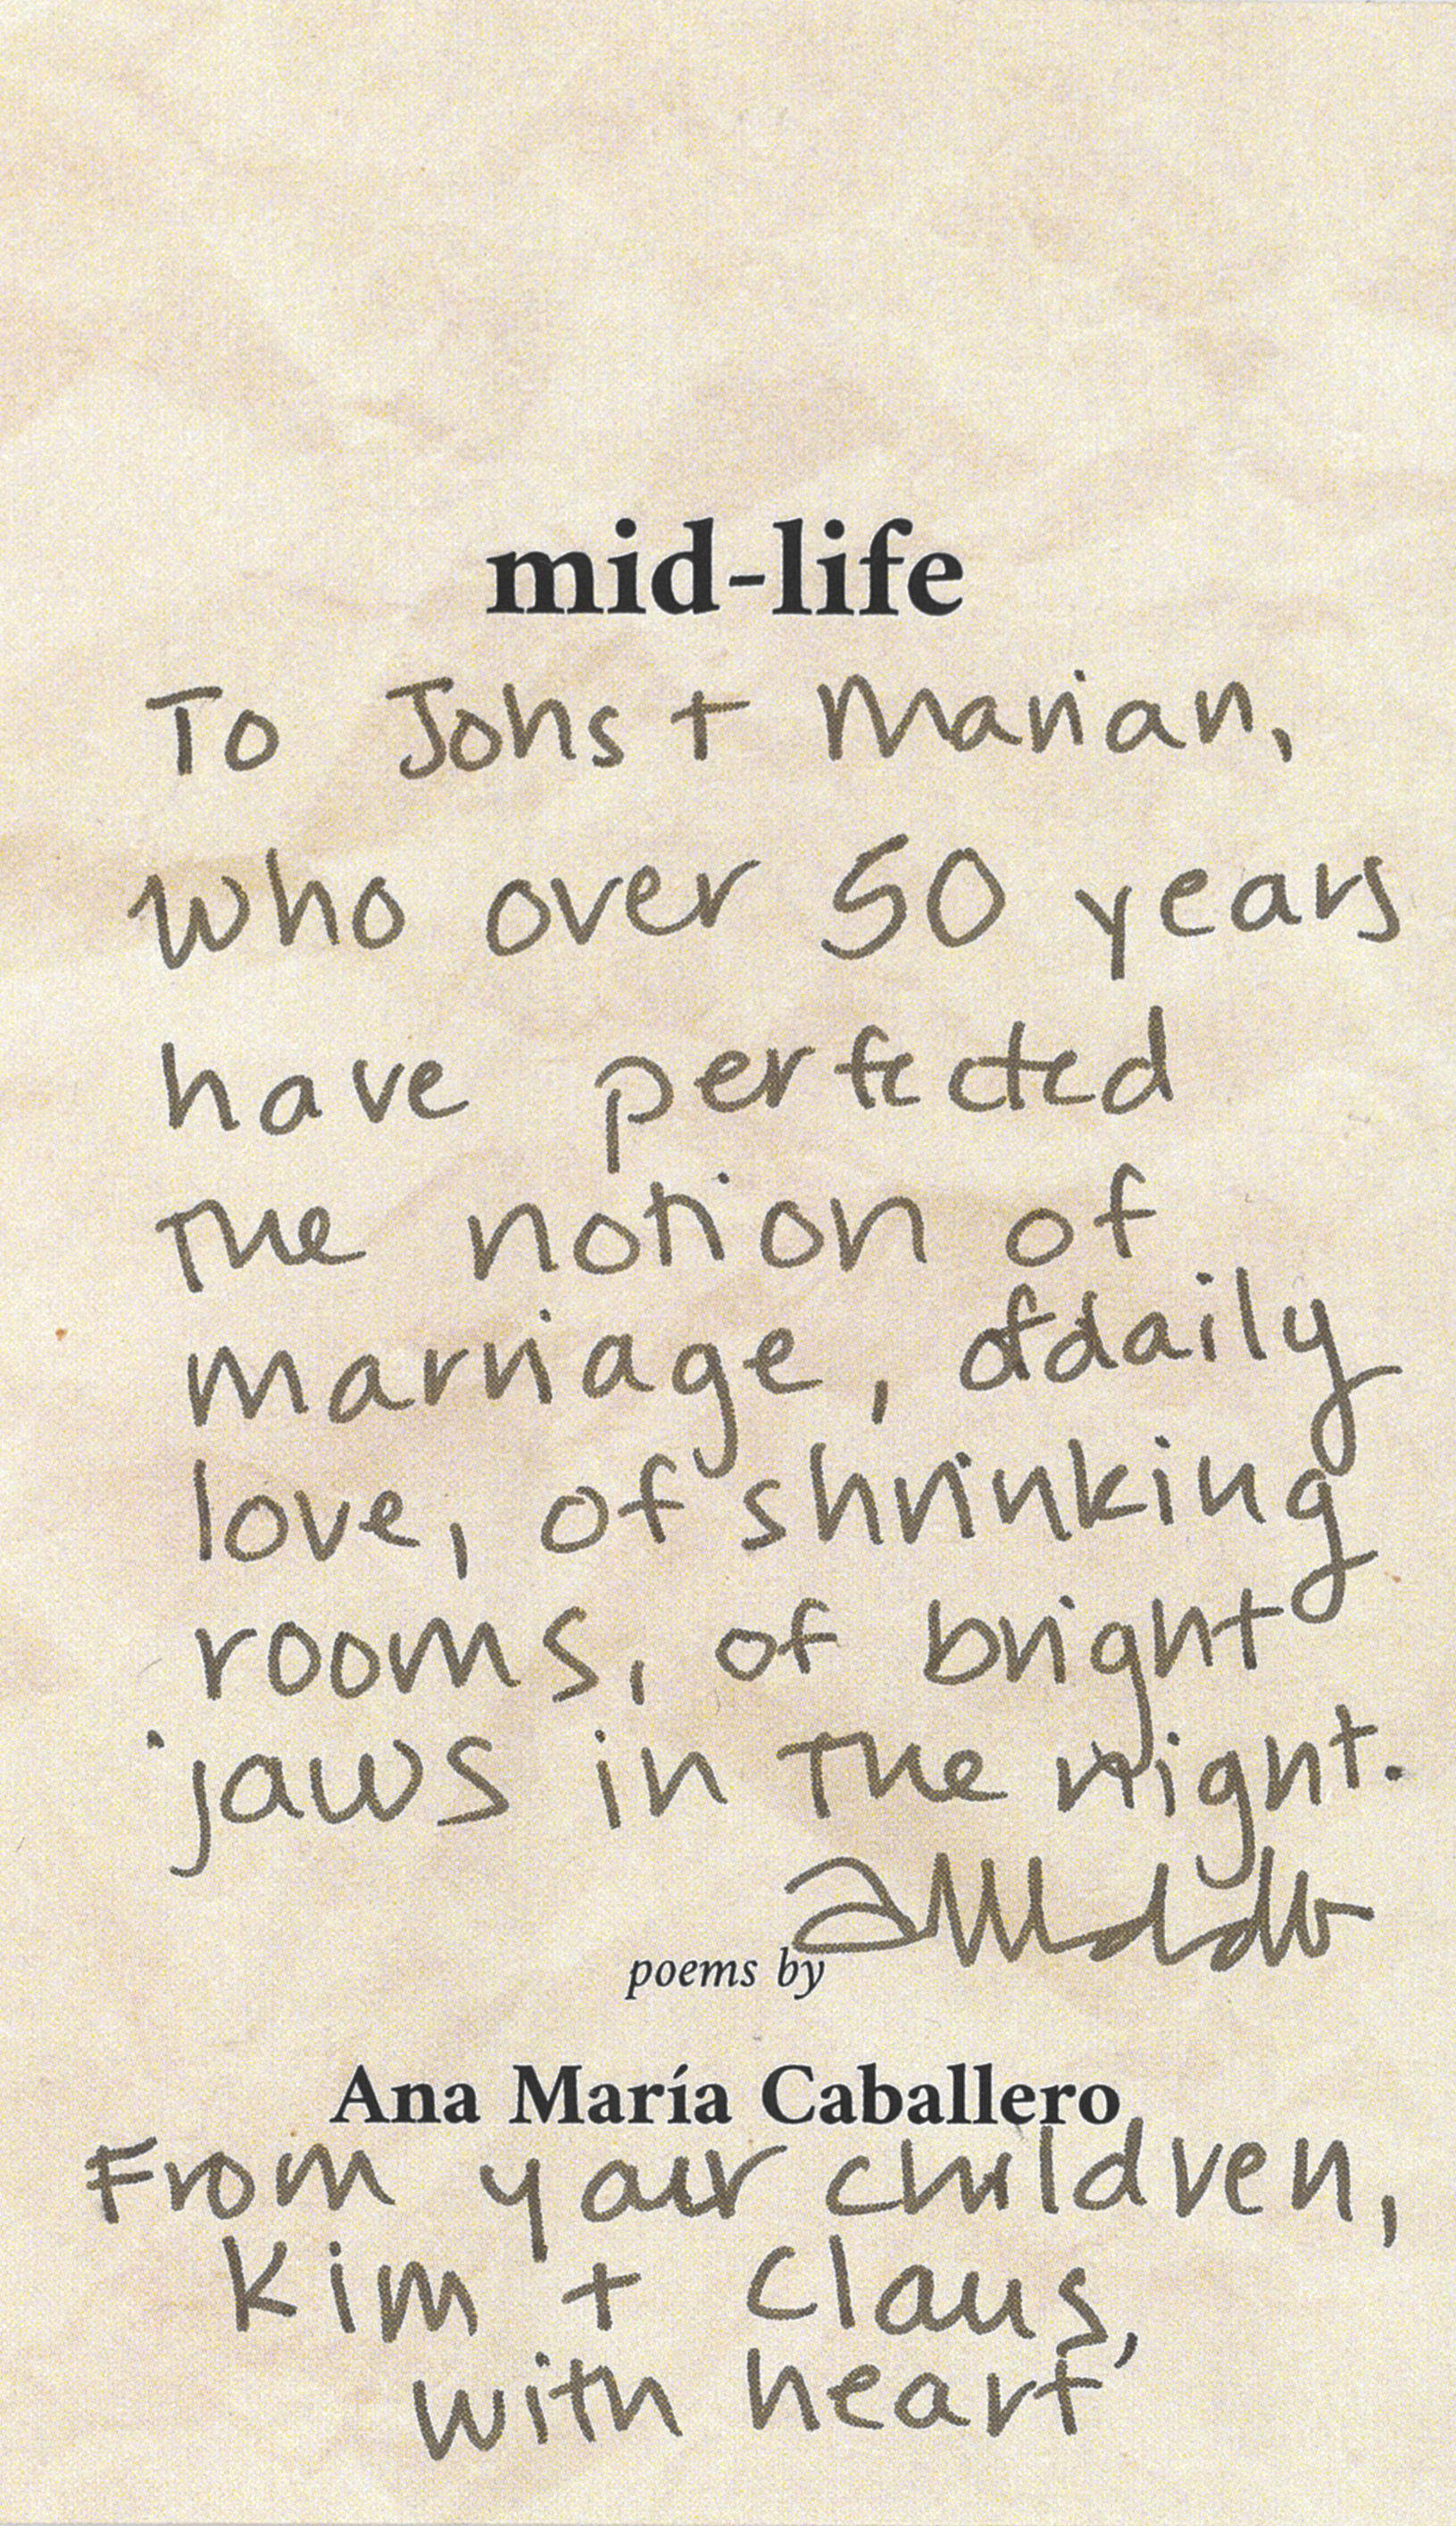 mid-life
To Johs + Marian,
who over 50 years
have perfected
the notion of
marriage, of daily
love, of shrinking
rooms, of bright
jaws in the night.
poems by
Ana María Caballero
From your children,
Kim + Claus,
with heart